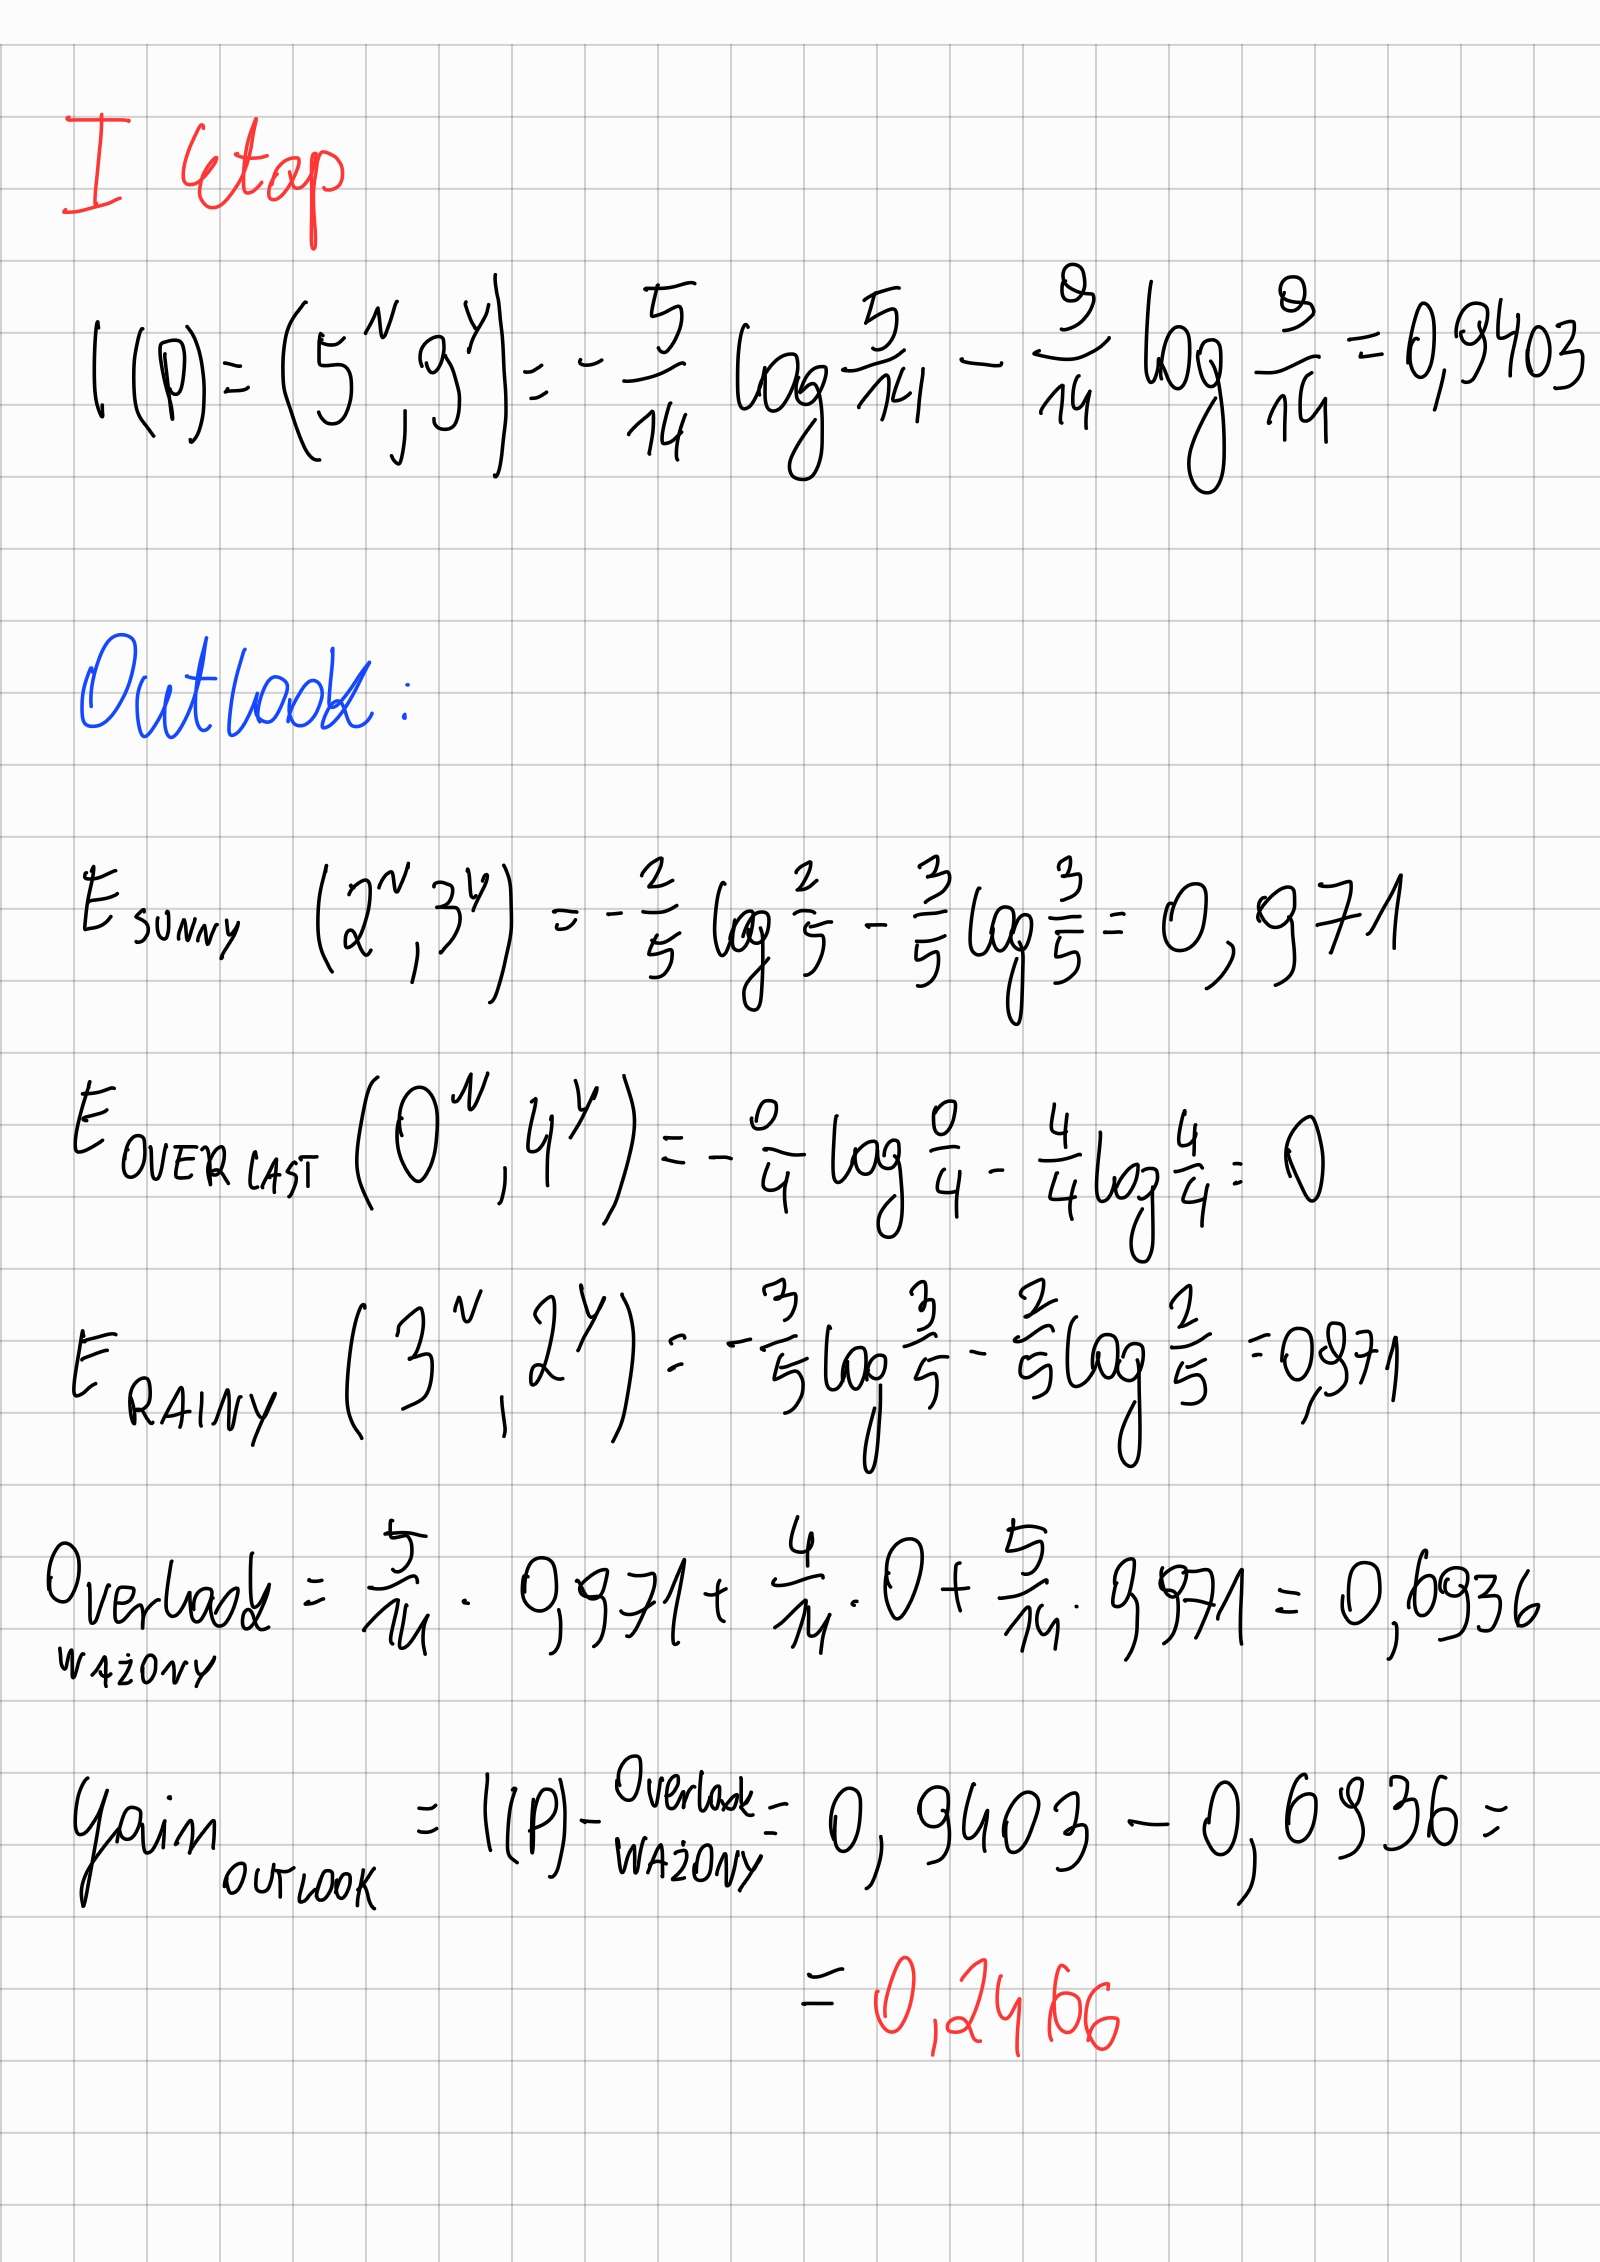 I etap
I(P) = (5^N, 9^Y) = - 5/14 log 5/14 - 9/14 log 9/14 = 0,9403
Outlook:
E SUNNY (2^N, 3^Y) = - 2/5 log 2/5 - 3/5 log 3/5 = 0,971
E OVERCAST (0^N, 4^Y) = - 0/4 log 0/4 - 4/4 log 4/4 = 0
E RAINY (3^N, 2^Y) = - 3/5 log 3/5 - 2/5 log 2/5 = 0,971
Overlook WAŻONY = 5/14 · 0,971 + 4/14 · 0 + 5/14 · 0,971 = 0,6936
Gain OUTLOOK = I(P) - Overlook WAŻONY = 0,9403 - 0,6936 =
= 0,2466